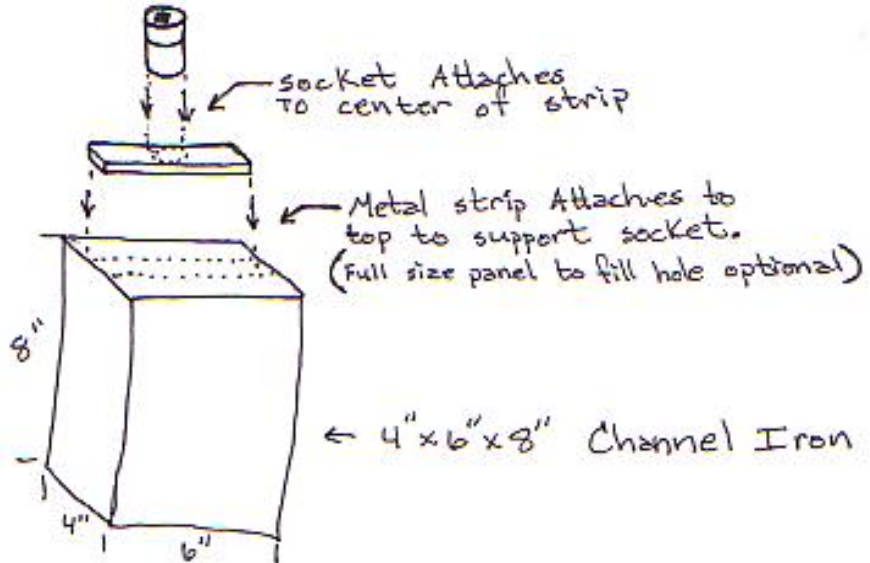 socket Attaches
TO center of strip
Metal strip Attaches to
top to support socket.
(Full size panel to fill hole optional)
8"
← 4"x6"x8" Channel Iron
4"
6"